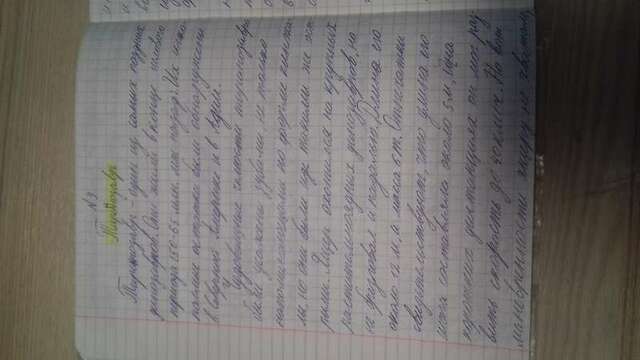 №3
Тиранозавр
Тиранозавр - один из самых поздних
динозавров. Они жили в конце мелового
периода 150-65 млн. лет назад. Их иско-
паемые остатки были обнаружены
в Северной Америке и в Азии.
Чудовищные челюсти тиранозавра
были усажены зубами не только
напоминающими по форме кинжа-
лы, но они были ещё такими же ост-
рыми. Ящер охотился на крупных
растительноядных динозавров, но
не брезговал и падалью. Длина его
около 12 м, а масса 6 т. Отпечатки
свидетельствуют, что длина его
шага составляла около 5 м, а на
коротких дистанциях он мог раз-
вить скорость до 40 км/ч. Но вот
маневренности ящеру не хватало,